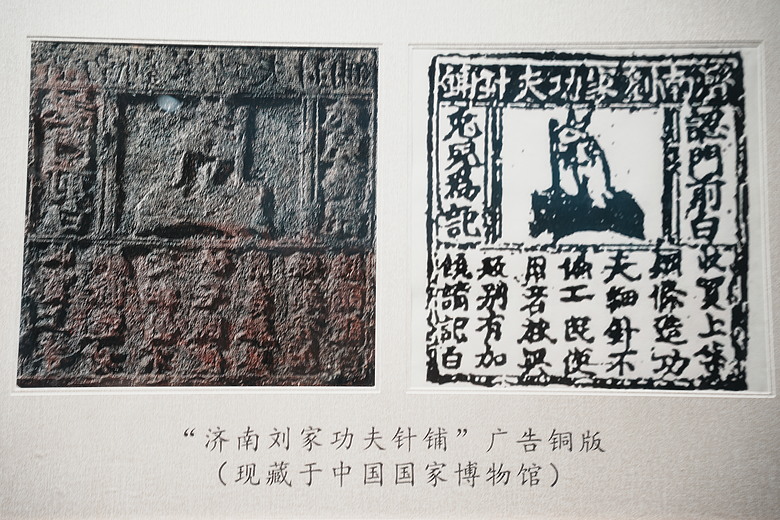 濟南刘家功夫針舖
認門前白
兔兒爲記
收買上等
鋼條造功
夫細針不
偷工民便
用若被興
販别有加
饒請記白
“济南刘家功夫针铺”广告铜版
(现藏于中国国家博物馆)